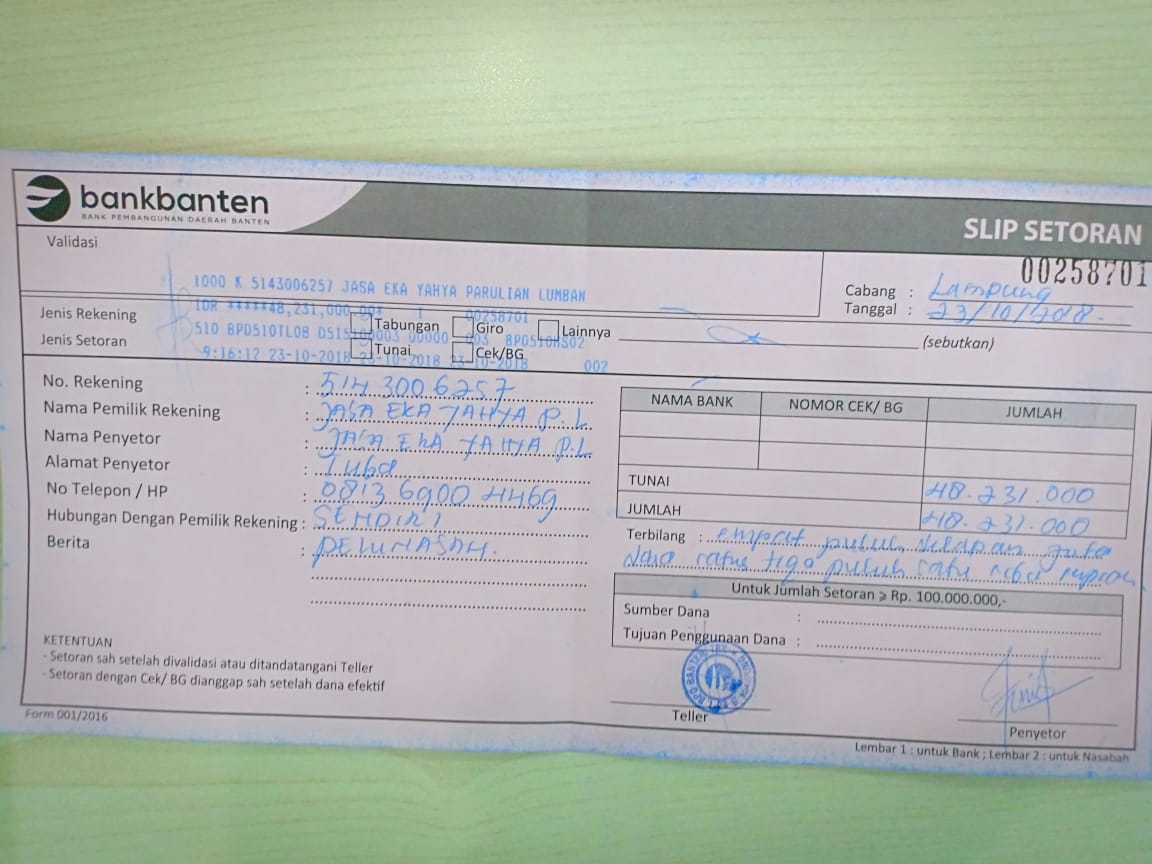 bankbanten
BANK PEMBANGUNAN DAERAH BANTEN
SLIP SETORAN
00258701
Validasi
1000 K 5143006257 JASA EKA YAHYA PARULIAN LUMBAN
IDR *****48,231,000.00* 00258701
9:16:12 23-10-2018 23-10-2018 23-10-2018 002
Cabang : Lampung
Tanggal : 23/10/2018.
Jenis Rekening Tabungan Giro Lainnya (sebutkan)
Jenis Setoran Tunai Cek/BG
No. Rekening : 514 300 6257
Nama Pemilik Rekening : JASA EKA YAHYA P.L
Nama Penyetor : JASA EKA YAHYA P.L
Alamat Penyetor : Tuba
No Telepon / HP : 0813 6900 4469
Hubungan Dengan Pemilik Rekening : SENDIRI
Berita : PELUNASAN.
NAMA BANK NOMOR CEK/ BG JUMLAH
TUNAI 48.231.000
JUMLAH 48.231.000
Terbilang : empat puluh delapan juta
dua ratus tiga puluh satu ribu rupiah
Untuk Jumlah Setoran ⩾ Rp. 100.000.000,-
Sumber Dana :
Tujuan Penggunaan Dana :
KETENTUAN
- Setoran sah setelah divalidasi atau ditandatangani Teller
- Setoran dengan Cek/ BG dianggap sah setelah dana efektif
Teller
Penyetor
Form 001/2016
Lembar 1 : untuk Bank ; Lembar 2 : untuk Nasabah